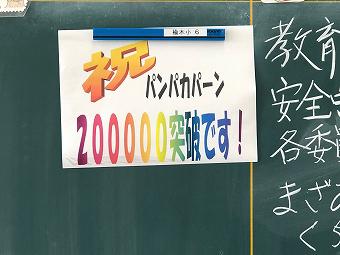 楡木小6
祝
パンパカパーン
200000突破です！
教育
安全
各委員
まざ
く